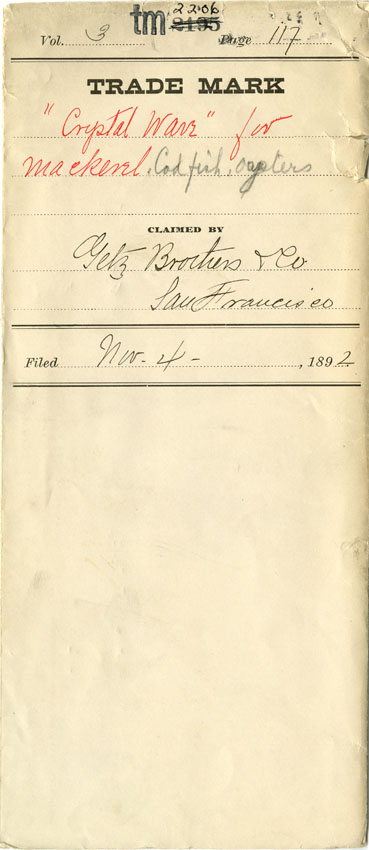 tm 2206
2195
Vol. 3 Page 117
TRADE MARK
"Crystal Wave" for
mackerel, Codfish, oysters
CLAIMED BY
Getz Brothers & Co
San Francisco
Filed Nov. 4 - , 1892